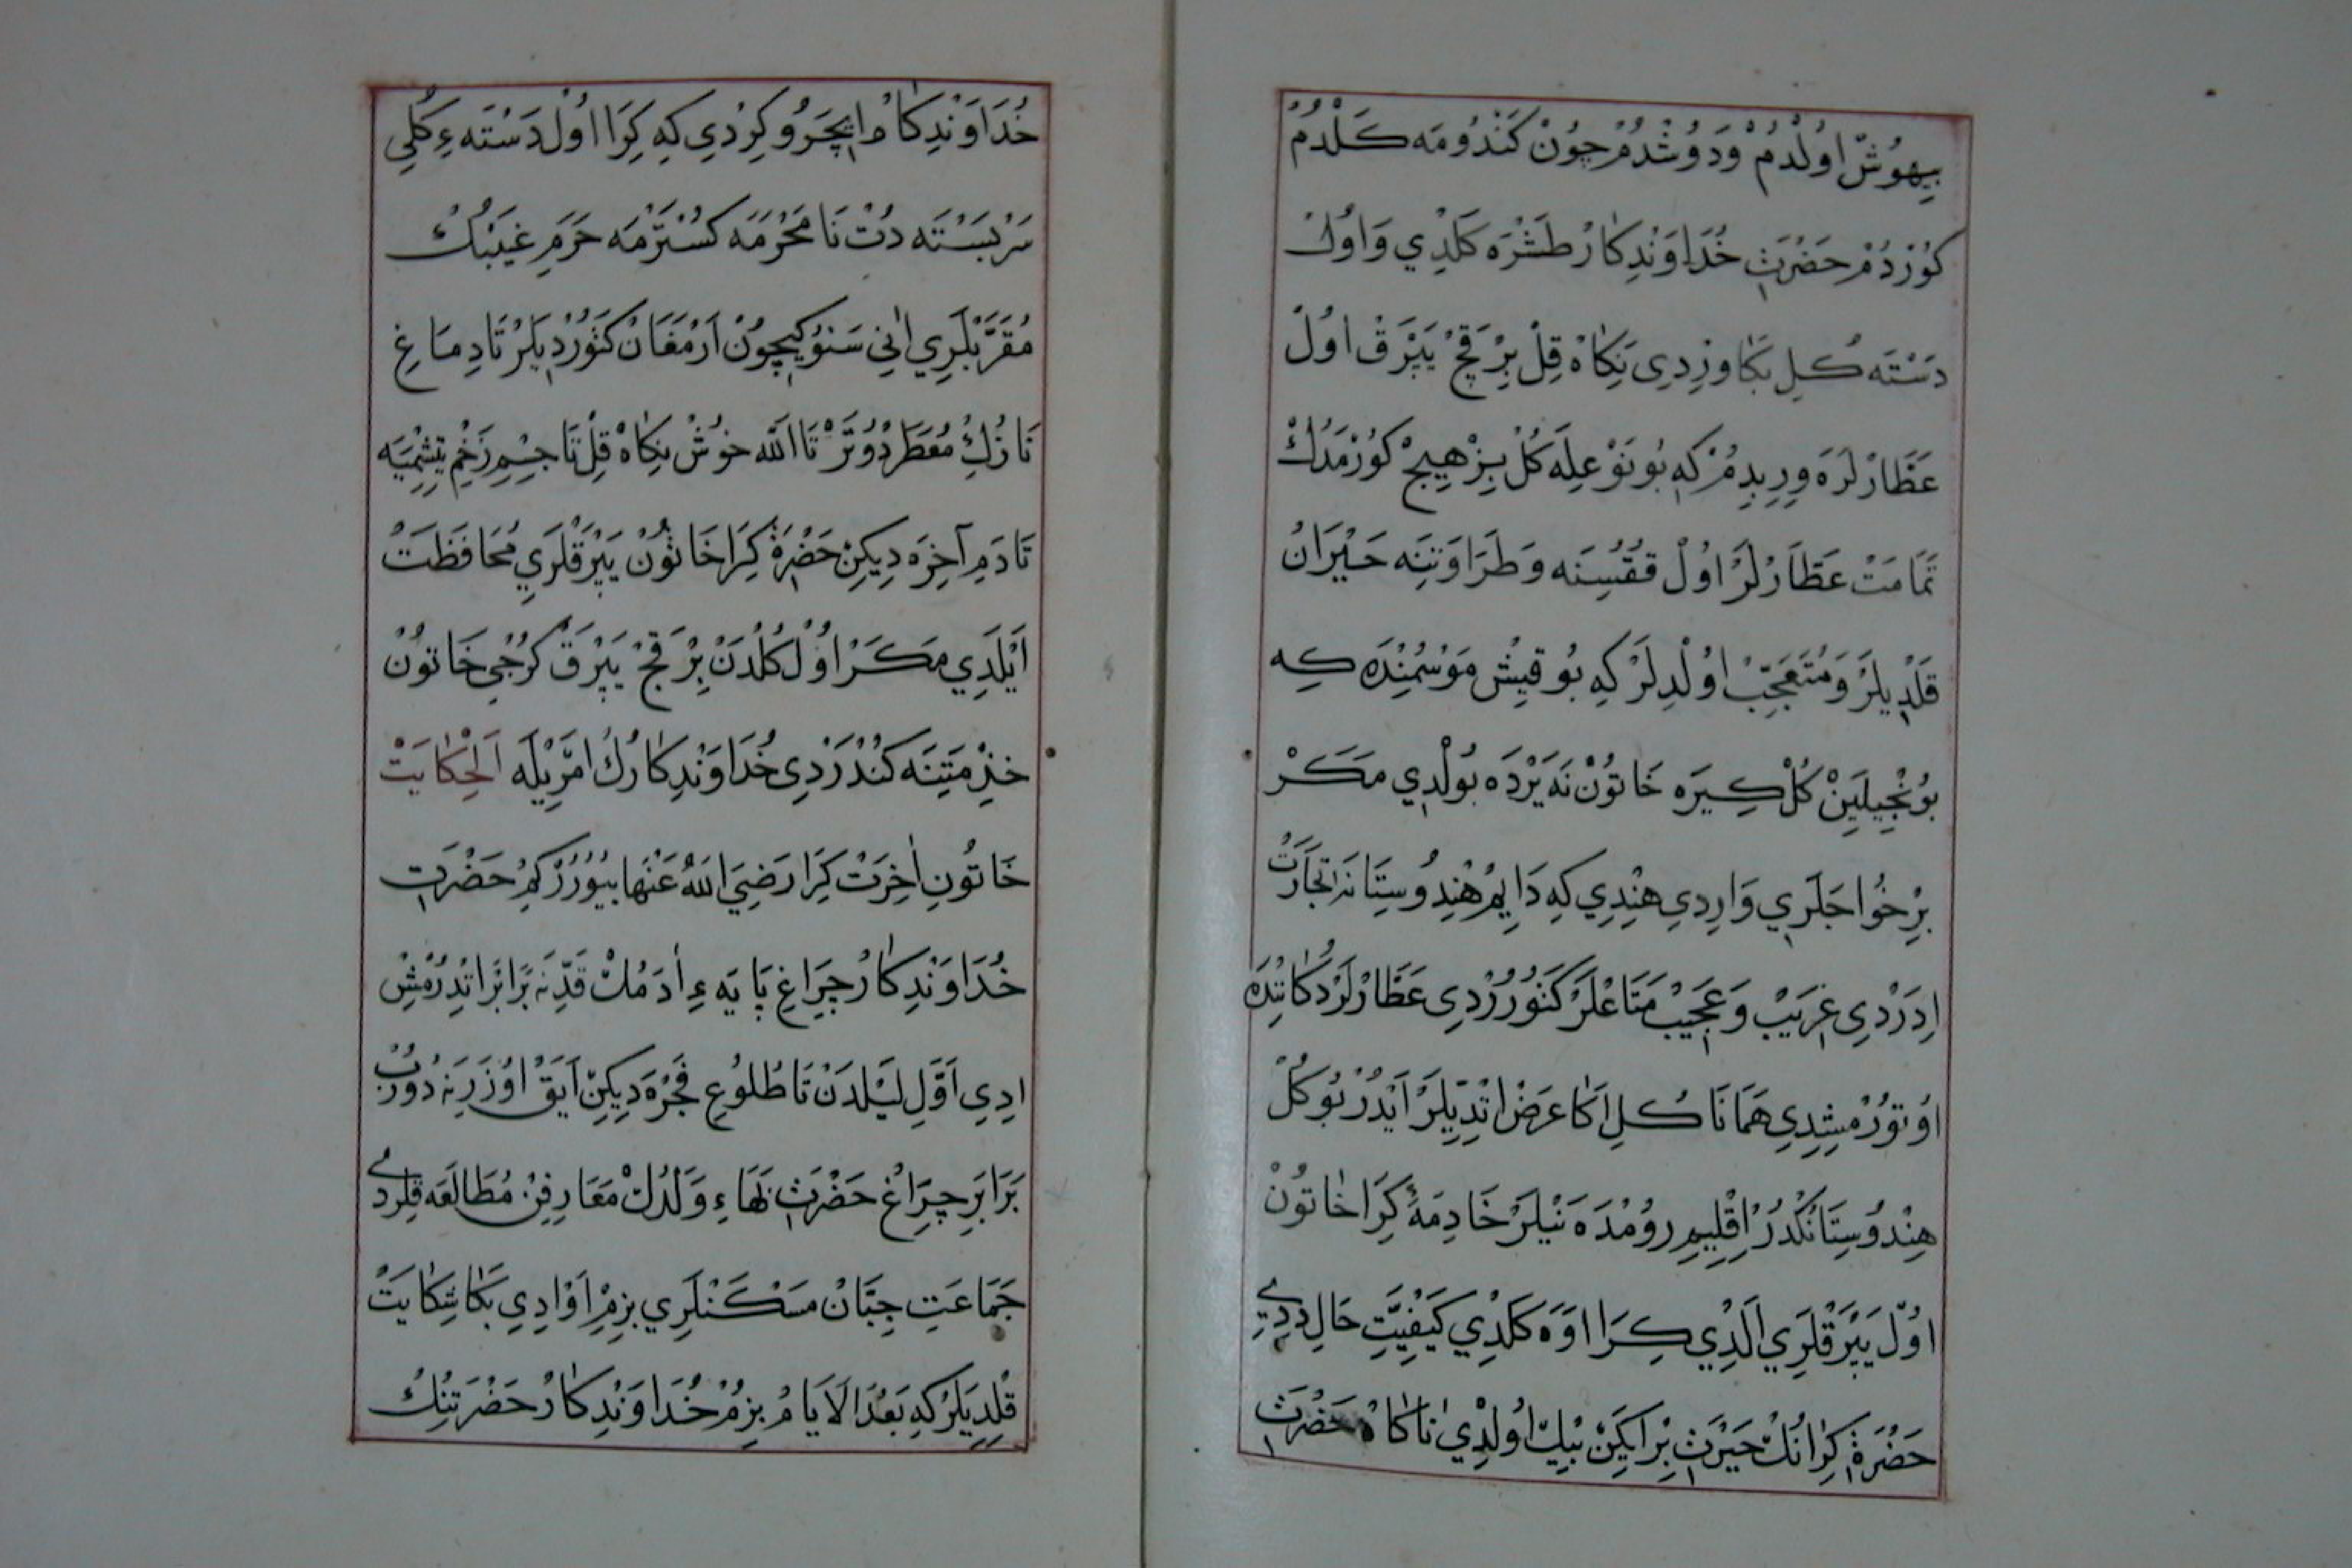 بِيهُوشْ اوُلْدُمْ وَدوُشْدُمْ چوُنْ كَنْدُومَه كَلْدُمْ
كوُرْدُمْ حَضْرَتِ خُدَاوَنْدِكَارْ طَشْرَه كَلْدِي وَاوُلْ
دَسْتَه كُلِ بَكَا وِرْدِى نِكَاهْ قِلْ بِرْ قَچْ يَپْرَقْ اوُلْ
عَطَّارْلَرَه وِرِيدِمْ كِه بُو نَوْعِلَه كُلْ بِزْ هِيچْ كوُرْمَدُكْ
تَمَامَتْ عَطَّارْلَرْ اوُلْ قُقُسِنَه وَطَرَاوَتِنَه حَيْرَانْ
قَلْدِيلَرْ وَمُتَعَجِّبْ اوُلْدِلَرْ كِه بُو قِيشْ مَوْسُمِنْدَه كِه
بُونْجِيلَيِنْ كُلْ كِيرَه خَاتوُنْ نَه يَرْدَه بُولْدِي مَكَرْ
بِرْ خُواجَلَرِي وَارِدِى هِنْدِي كِه دَايِمْ هِنْدُوسِتَانَه تِجَارَتْ
اِدَرْدِى غَرِيبْ وَعَجِيبْ مَتَاعْلَرْ كَتوُرُرْدِى عَطَّارْلَرْ دُكَانِنْدَه
اوُتوُرْمِشِدِى هَمَانَا كُلِ اَكَا عَرَضْ اِتْدِيلَرْ اَيْدُرْ بُو كُلْ
هِنْدُوسِتَانْكُدُرْ اِقْلِيمِ رُومْدَه نَيْلَرْ خَادِمَۀ كِرَا خَاتوُنْ
اوُلْ يَپْرَقْلَرِي اَلْدِي كِرَا اوَه كَلْدِي كَيْفِيَّتِ حَالِ دِدِي
حَضْرَۀِ كِرَانُكْ حَيْرَتِ بِرْ اِيكَنْ بِيكْ اوُلْدِي نَاكَاهْ حَضْرَتِ
خُدَاوَنْدِكَارْ اِيچَرُو كِرْدِي كِه كِرَا اوُلْ دَسْتَه ءِ كُلِي
سَرْبَسْتَه دُتْ نَا مَحْرُمَه كُسْتَرْمَه حَرَمِ غَيْبُكْ
مُقَرَّبْلَرِي اَنِي سَنُوكِيچوُنْ اَرْمَغَانْ كَتوُرْدِيلَرْ تَا دِمَاغِ
نَازُكِ مُعَطَّرْ دوُتَرْ تَا اللّٰه خوُشْ نِكَاهْ قِلْ تَا جِسْمِ زَخْمِ يِتِشْمِيَه
تَا دَمِ آخِرَه دِيكِنْ حَضْرَۀِ كِرَا خَاتوُنْ يَپْرَقْلَرِي مُحَافَظَتْ
اَيْلَدِي مَكَرْ اوُلْ كُلْدَنْ بِرْ قَچْ يَپْرَقْ كُرْجِي خَاتوُنْ
خِذْمَتِنَه كُنْدَرْدِى خُدَاوَنْدِكَارُكْ اَمْرِيلَه اَلْحِكَايَتْ
خَاتوُنِ اٰخِرَتْ كِرَا رَضِيَ اللّٰهُ عَنْهَا بُيوُرُرْ كِمْ حَضْرَتِ
خُدَاوَنْدِكَارْ چِرَاغِ پَايَه ءِ اٰدَمُكْ قَدِّنَه بَرَابَرْ اِتْدِرْمِشْ
اِدِى اَوَّلِ لَيْلدَنْ تَا طُلوُعِ فَجْرَه دِيكِنْ اَيَقْ اوُزَرِنَه دوُرُبْ
بَرَابَرِ چِرَاغْ حَضْرَتِ بَهَاءِ وَلَدُكْ مَعَارِفِنْ مُطَالَعَه قِلُرْدِي
جَمَاعَتِ جِنَّانْ مَسْكَنْلَرِي بِزِمْ اَوَادِي بَكَا شِكَايَتْ
قِلْدِيلَرْ كِه بَعْدَ الْاَيَامْ بِزِمْ خُدَاوَنْدِكَارْ حَضْرَتِنُكْ